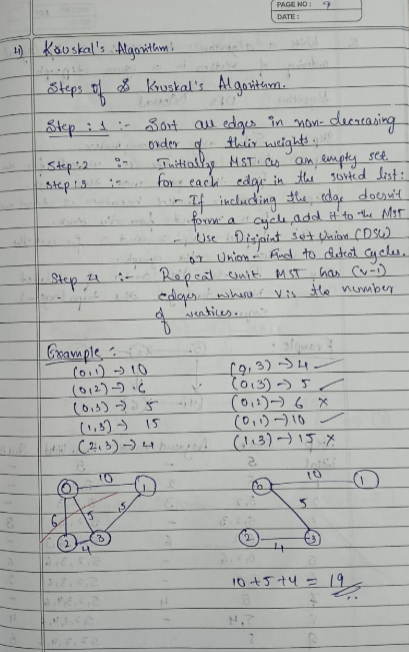 PAGE NO: 9
DATE:
4) Kruskal's Algorithm:
Steps of Kruskal's Algorithm.
Step : 1 :- Sort all edges in non-decreasing
order of their weights.
Step : 2 :- Initialize MST as an empty set.
Step : 3 :- for each edge in the sorted list:
- If including the edge doesn't
form a cycle add it to the MST
- Use Disjoint Set Union (DSU)
or Union-Find to detect cycles.
Step 4 :- Repeat until MST has (V-1)
edges where V is the number
of vertices.
Example :-
(0,1) → 10 (2,3) → 4 ✓
(0,2) → 6 (0,3) → 5 ✓
(0,3) → 5 (0,2) → 6 ×
(1,3) → 15 (0,1) → 10 ✓
(2,3) → 4 (1,3) → 15 ×
0 10 1 0 10 1
6 5 15 5
2 4 3 2 4 3
10 + 5 + 4 = 19